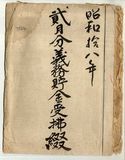 昭和拾八年
貳月分義務貯金受拂綴